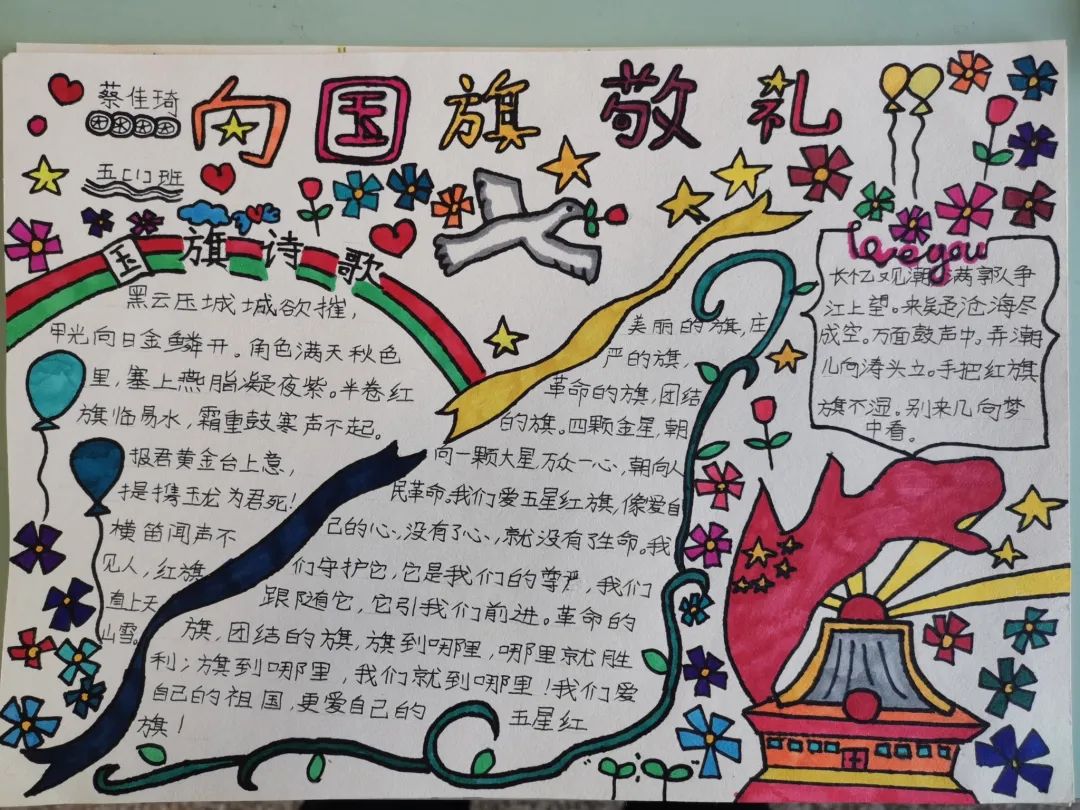 向国旗敬礼
蔡佳琦
五(1)班
国旗诗歌
黑云压城城欲摧,
甲光向日金鳞开。角色满天秋色
里,塞上燕脂凝夜紫。半卷红
旗临易水,霜重鼓寒声不起。
报君黄金台上意,
提携玉龙为君死!
横笛闻声不
见人,红旗
直上天
山雪。
美丽的旗,庄
严的旗,
革命的旗,团结
的旗。四颗金星,朝
向一颗大星,万众一心,朝向人
民革命。我们爱五星红旗,像爱自
己的心,没有了心,就没有了生命。我
们守护它,它是我们的尊严,我们
跟随它,它引我们前进。革命的
旗,团结的旗,旗到哪里,哪里就胜
利;旗到哪里,我们就到哪里!我们爱
自己的祖国,更爱自己的 五星红
旗!
love you
长忆观潮,满郭人争
江上望。来疑沧海尽
成空。万面鼓声中。弄潮
儿向涛头立。手把红旗
旗不湿。别来几向梦
中看。